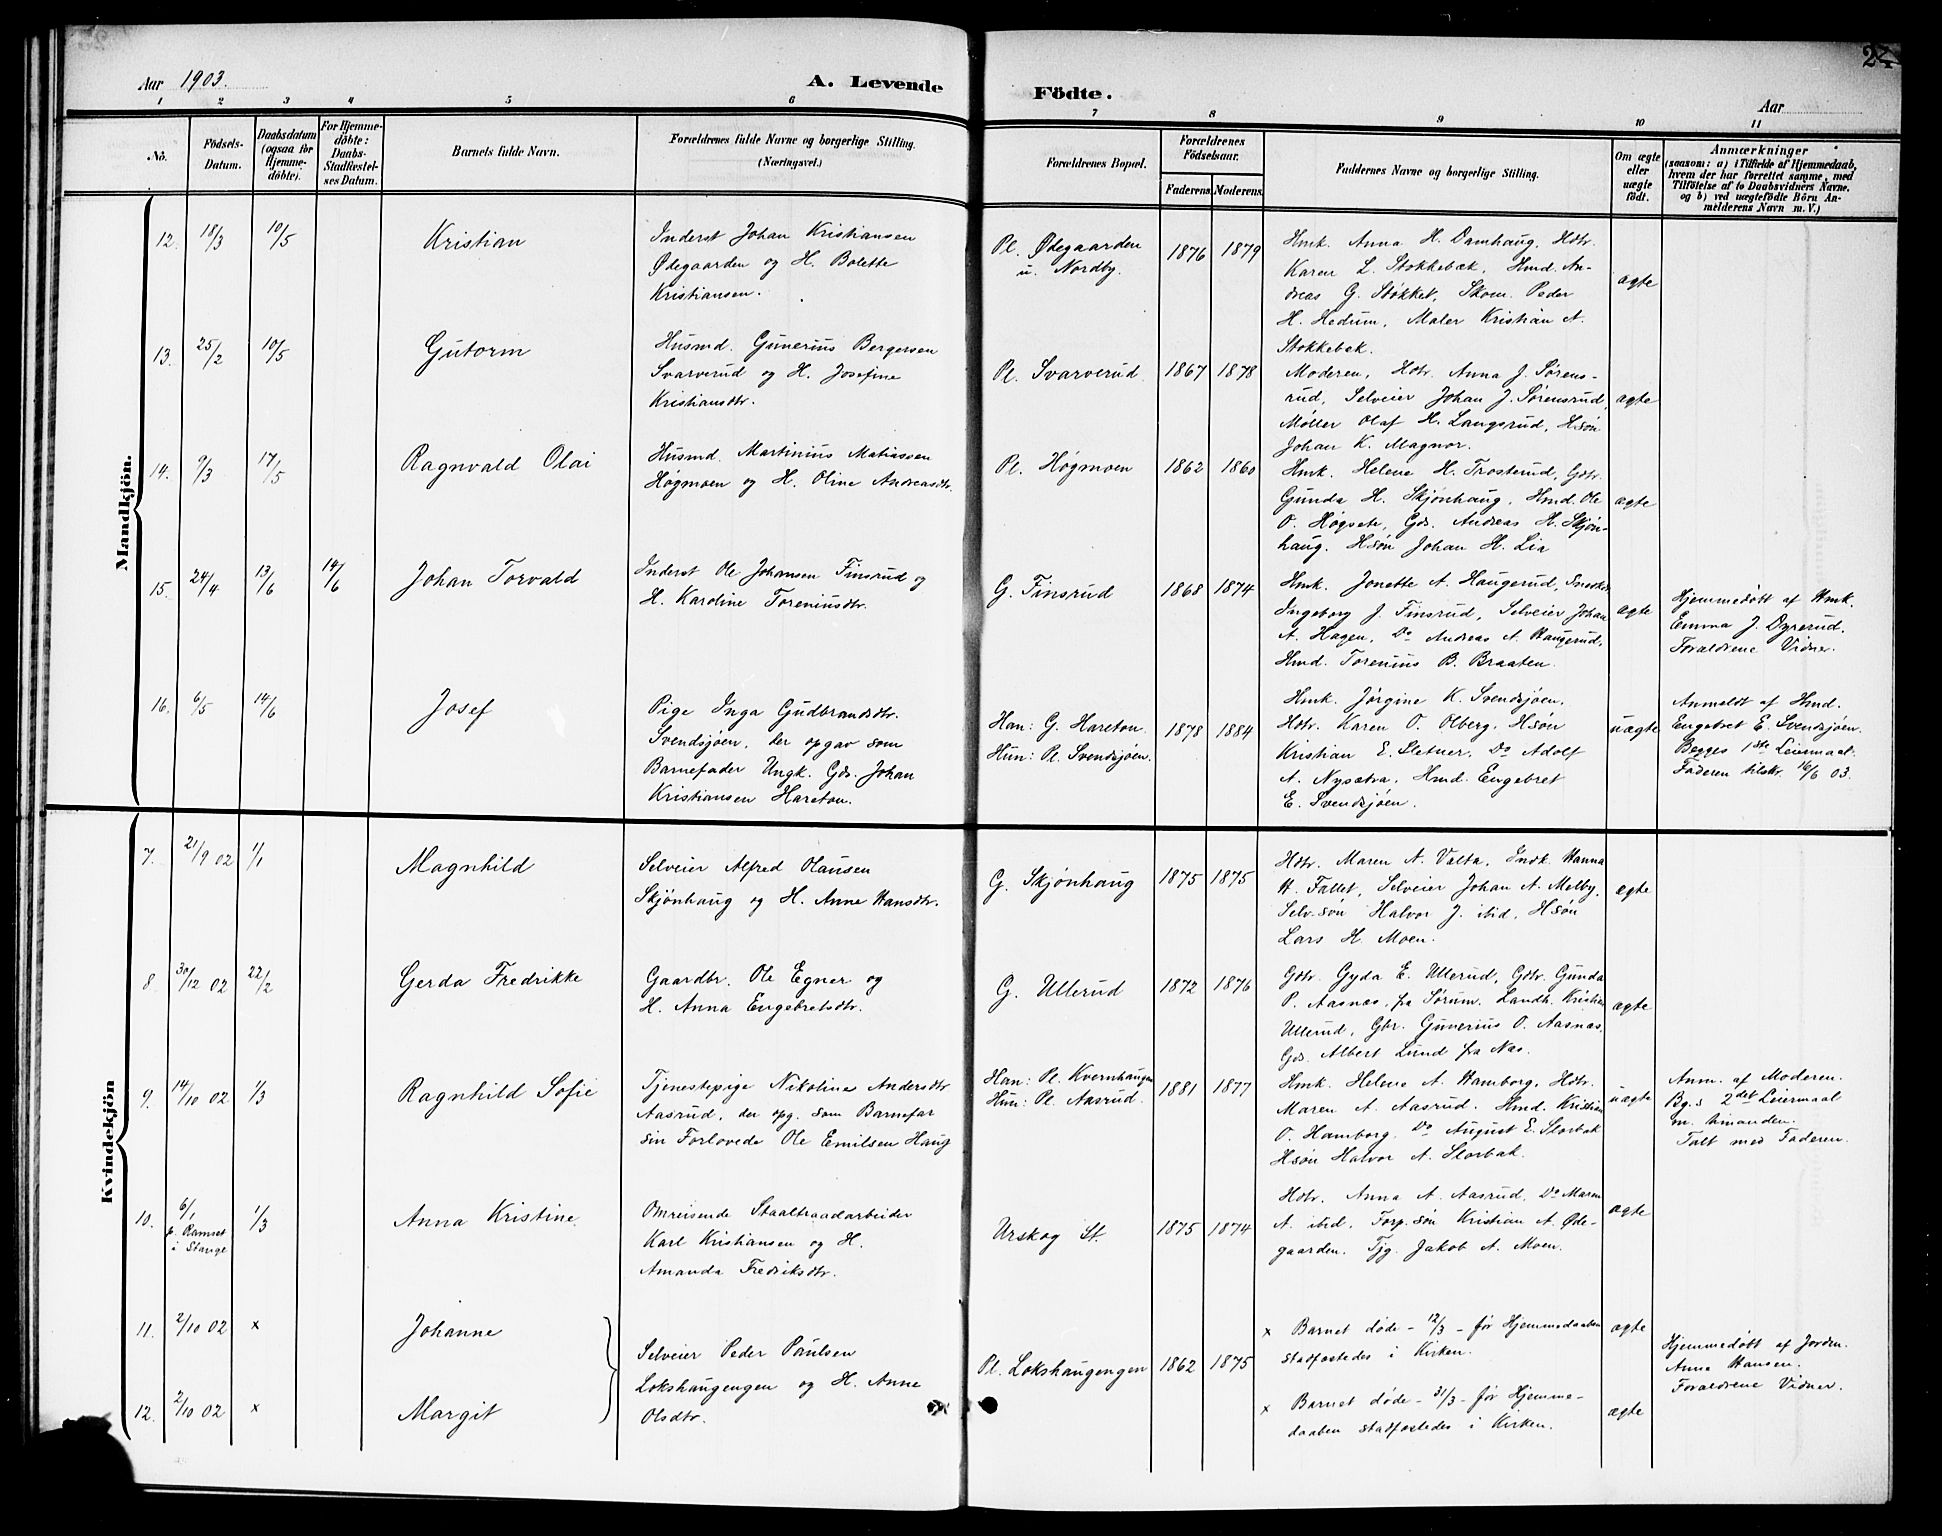 24
Aar 1903.
A. Levende Födte.
Aar
1 2 3 4 5 6 7 8 9 10 11
No.
Födsels-
Datum.
Daabsdatum
(ogsaa for
Hjemme-
döbte).
For Hjemme-
döbte:
Daabs-
Stadfæstel-
ses Datum.
Barnets fulde Navn.
Forældrenes fulde Navne og borgerlige Stilling.
(Næringsvei.)
Forældrenes Bopæl.
Forældrenes
Födselsaar.
Faderens. Moderens.
Faddernes Navne og borgerlige Stilling.
Om ægte
eller
uægte
födt.
Anmærkninger
(saasom: a) i Tilfælde af Hjemmedaab,
hvem der har forrettet samme, med
Tilföielse af to Daabsvidners Navne.
og b) ved uægtefödte Börn An-
melderens Navn m. V.)
Mandkjön.
12. 18/3 10/5 Kristian
Inderst Johan Kristiansen
Ødegaarden og H. Bolette
Kristiansen.
Pl. Ødegaarden
u. Nordby.
1876 1879
Hmk. Anna H. Damhaug, Hdtr.
Karen L. Stokkebæk, Hmd. An-
dreas G. Støkket, Skom. Peder
H. Hedum, Maler Kristian A.
Stokkebæk.
ægte
13. 25/2 10/5 Gutorm
Husmd. Gunerius Bergersen
Svarverud og H. Josefine
Kristiansdtr.
Pl. Svarverud
1867 1878
Moderen, Hdtr. Anna J. Sørens-
rud, Selveier Johan J. Sørensrud,
Møller Olaf H. Langsrud, Hsøn
Johan K. Magnor.
ægte
14. 9/3 17/5 Ragnvald Olai
Husmd. Martinius Matiassen
Høgmoen og H. Oline Andreasdtr.
Pl. Høgmoen
1862 1860
Hmk. Helene H. Trosterud, Gdtr.
Gunda H. Skjønhaug, Hmd. Ole
O. Høgsete, Gds. Andreas H. Skjøn-
haug. Hsøn Johan H. Lia
ægte
15. 24/4 13/6 14/6 Johan Torvald
Inderst Ole Johansen Finsrud og
H. Karoline Toreniusdtr.
G. Finsrud
1868 1874
Hmk. Jonette A. Haugerud,
Ingeborg J. Finsrud, Selveier Johan
A. Hagen, Do Andreas A. Haugerud,
Hmd. Torenius B. Braaten.
ægte
Hjemmedøbt af Hmk.
Emma J. Dyrerud.
Forældrene Vidner.
16. 6/5 14/6 Josef
Pige Inga Gudbrandsdtr.
Svendsjøen, der opgav som
Barnefader Ungk. Gds. Johan
Kristiansen Hareton.
Han: G. Hareton.
Hun: Pl. Svendsjøen.
1878 1884
Hmk. Jørgine K. Svendsjøen.
Hdtr. Karen O. Olberg. Hsøn
Kristian E. Sletner, Do Adolf
A. Nysætra, Hmd. Engebret
E. Svendsjøen.
uægte
Anmeldt af Hmd.
Engebret E. Svendsjøen.
Begges 1ste Leiermaal.
Faderen tilskr. 16/6 03.
Kvindekjön
7. 21/9 02 1/1 Magnhild
Selveier Alfred Olausen
Skjønhaug og H. Anne Hansdtr.
G. Skjønhaug
1875 1875
Hdtr. Maren A. Valta, Indk. Hanna
H. Fallet, Selveier Johan A. Melby,
Selv.søn Halvor J. ibid, Hsøn
Lars H. Moen.
ægte
8. 30/12 02 22/2 Gerda Fredrikke
Gaardbr. Ole Egner og
H. Anna Engebretsdtr.
G. Ullerud
1872 1876
Gdtr. Gyda E. Ullerud, Gdtr. Gunda
P. Aasnas, fra Sørum. Landh. Kristian
Ullerud, Gbr. Gunerius O. Aasnas,
Gds. Albert Lund fra Nas.
ægte
9. 14/10 02 1/3 Ragnhild Sofie
Tjenestepige Nikoline Andersdtr
Aasrud, der opg. som Barnefar
sin Forlovede Ole Emilsen Haug
Han: Pl. Kvernhaugen
Hun: Pl. Aasrud.
1881 1877
Hmk. Helene A. Hamborg, Hdtr.
Maren A. Aasrud. Hmd. Kristian
O. Hamborg. Do August E. Storbak
Hsøn Halvor A. Storbak.
uægte
Anm. af Moderen.
Bg.s 2det Leiermaal
m. hinanden.
Talt med Faderen.
10. 6/1 1/3 Anna Kristine
p. Ramset
i Stange
Omreisende Staaltraadarbeider
Karl Kristiansen og H.
Amanda Fredriksdtr.
Urskog St.
1875 1874
Hdtr. Anna A. Aasrud, Do Maren
A. ibid, Torp.søn Kristian A. Øde-
gaarden. Tjg. Jakob A. Moen.
ægte
11. 2/10 02 x Johanne
Selveier Peder Paulsen
Lokshaugengen og H. Anne
Olsdtr.
Pl. Lokshaugengen
1862 1875
x Barnet døde - 12/3 - før Hjemmedaaben
stadfæstedes i Kirken.
ægte
Hjemmedøbt af Jordm.
Anna Hansen.
Forældrene Vidner.
12. 2/10 02 x Margit
x Barnet døde - 31/3 - før Hjemme-
daaben stadfæstedes i Kirken.
ægte